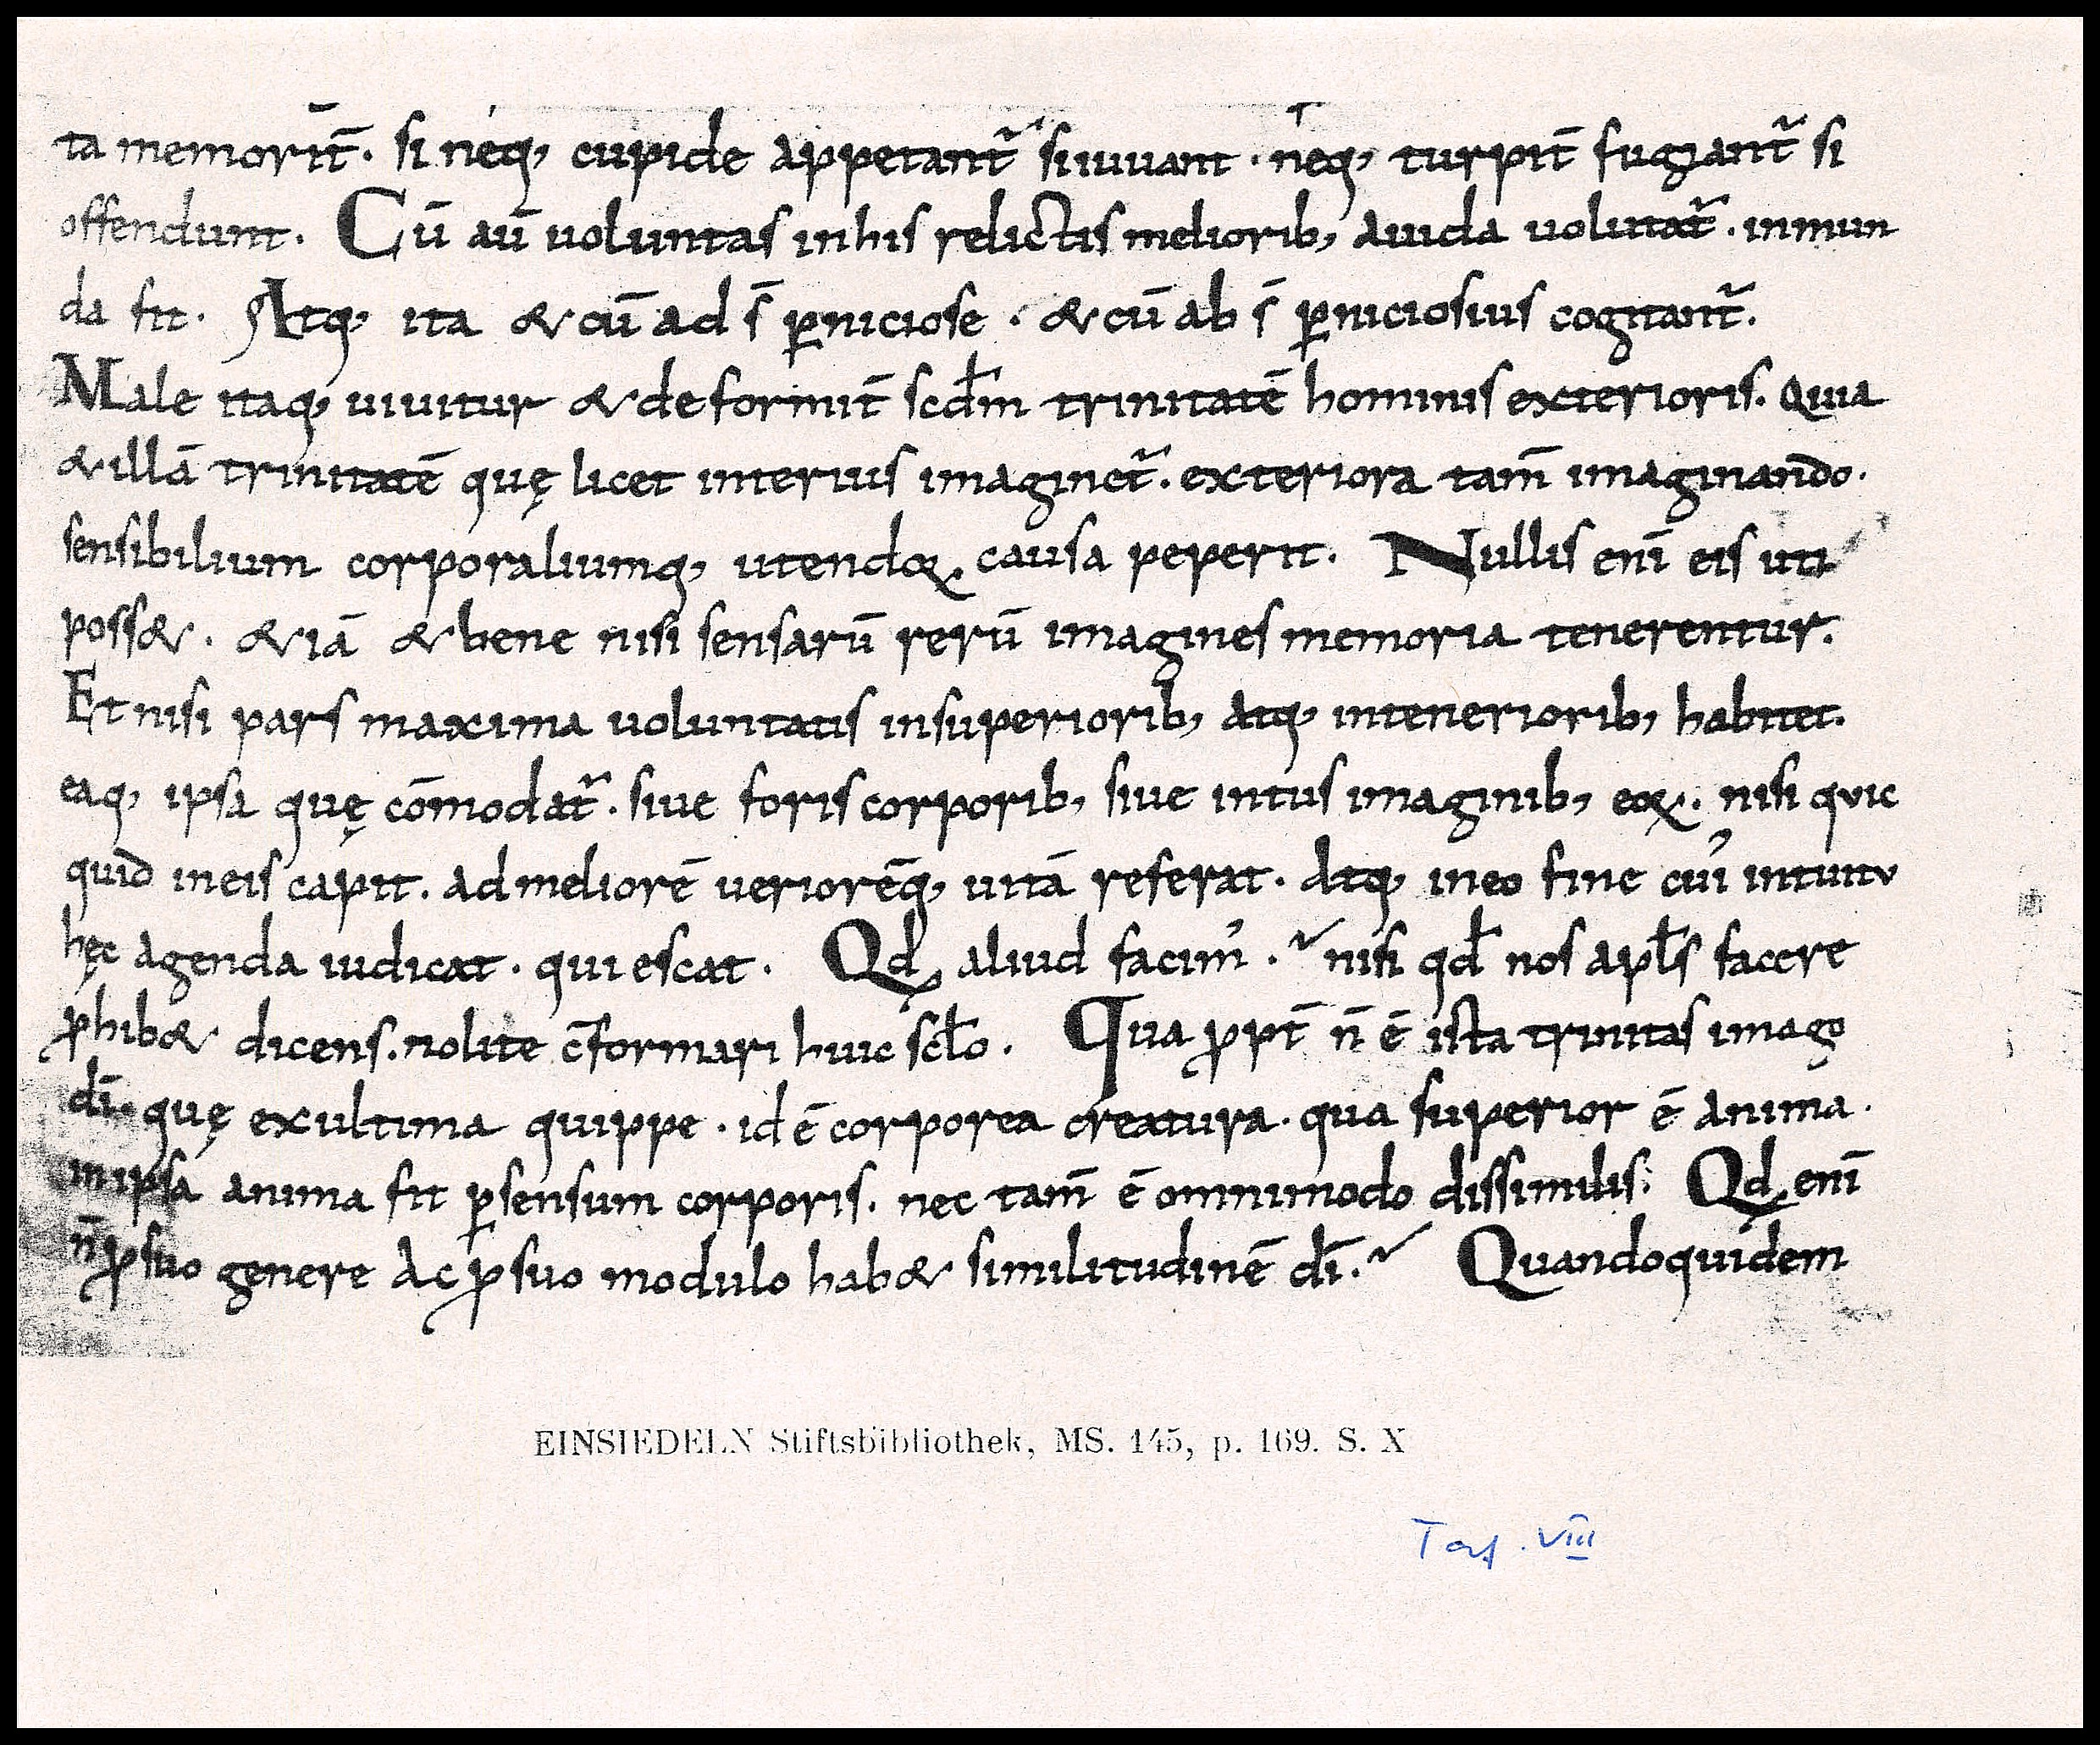 ta memorit̄. si neq, cupide appetant᷑ si iuuant. neq, turpit̄ fugiant᷑ si
offendunt. Cū aū uoluntas in his relictis meliorib, auida uolutat᷑. inmun
da fit. Atq, ita & cū ad s̄ ꝑniciose. & cū ab s̄ ꝑniciosius cogitant᷑.
Male itaq, uiuitur & deformit̄ scd̄m trinitatē hominis exterioris. Quia
& illā trinitatē quę licet interius imaginet᷑. exteriora tam̄ imaginando.
sensibilium corporaliumq, utendoꝝ causa peperit. Nullis enī eis uti
poss&. &iā & bene nisi sensarū rerū imagines memoria tenerentur.
Et nisi pars maxima uoluntatis in superiorib, atq, inteneriorib, habitet.
eaq, ipsa quę cōmodat᷑. siue foris corporib, siue intus imaginib, eoꝝ. nisi quic
quid in eis capit. ad meliorē ueriorēq, uitā referat. atq, in eo fine cui᾿ intuitu
hęc agenda iudicat. quiescat. Qd aliud facim᾿. nisi qđ nos apłs facere
ꝓhib& dicens. nolite c̄formari huic scło. Qua ꝓpt̄ n̄ ē ista trinitas imago
dī. quę ex ultima quippe. id ē corporea creatura. qua superior ē anima.
in ipsa anima fit ꝑ sensum corporis. nec tam̄ ē omnimodo dissimilis. Qd enī
n̄ ꝓ suo genere ac ꝓ suo modulo hab& similitudinē dī. Quandoquidem
EINSIEDELN Stiftsbibliothek, MS. 145, p. 169. S. X
Taf. VIII